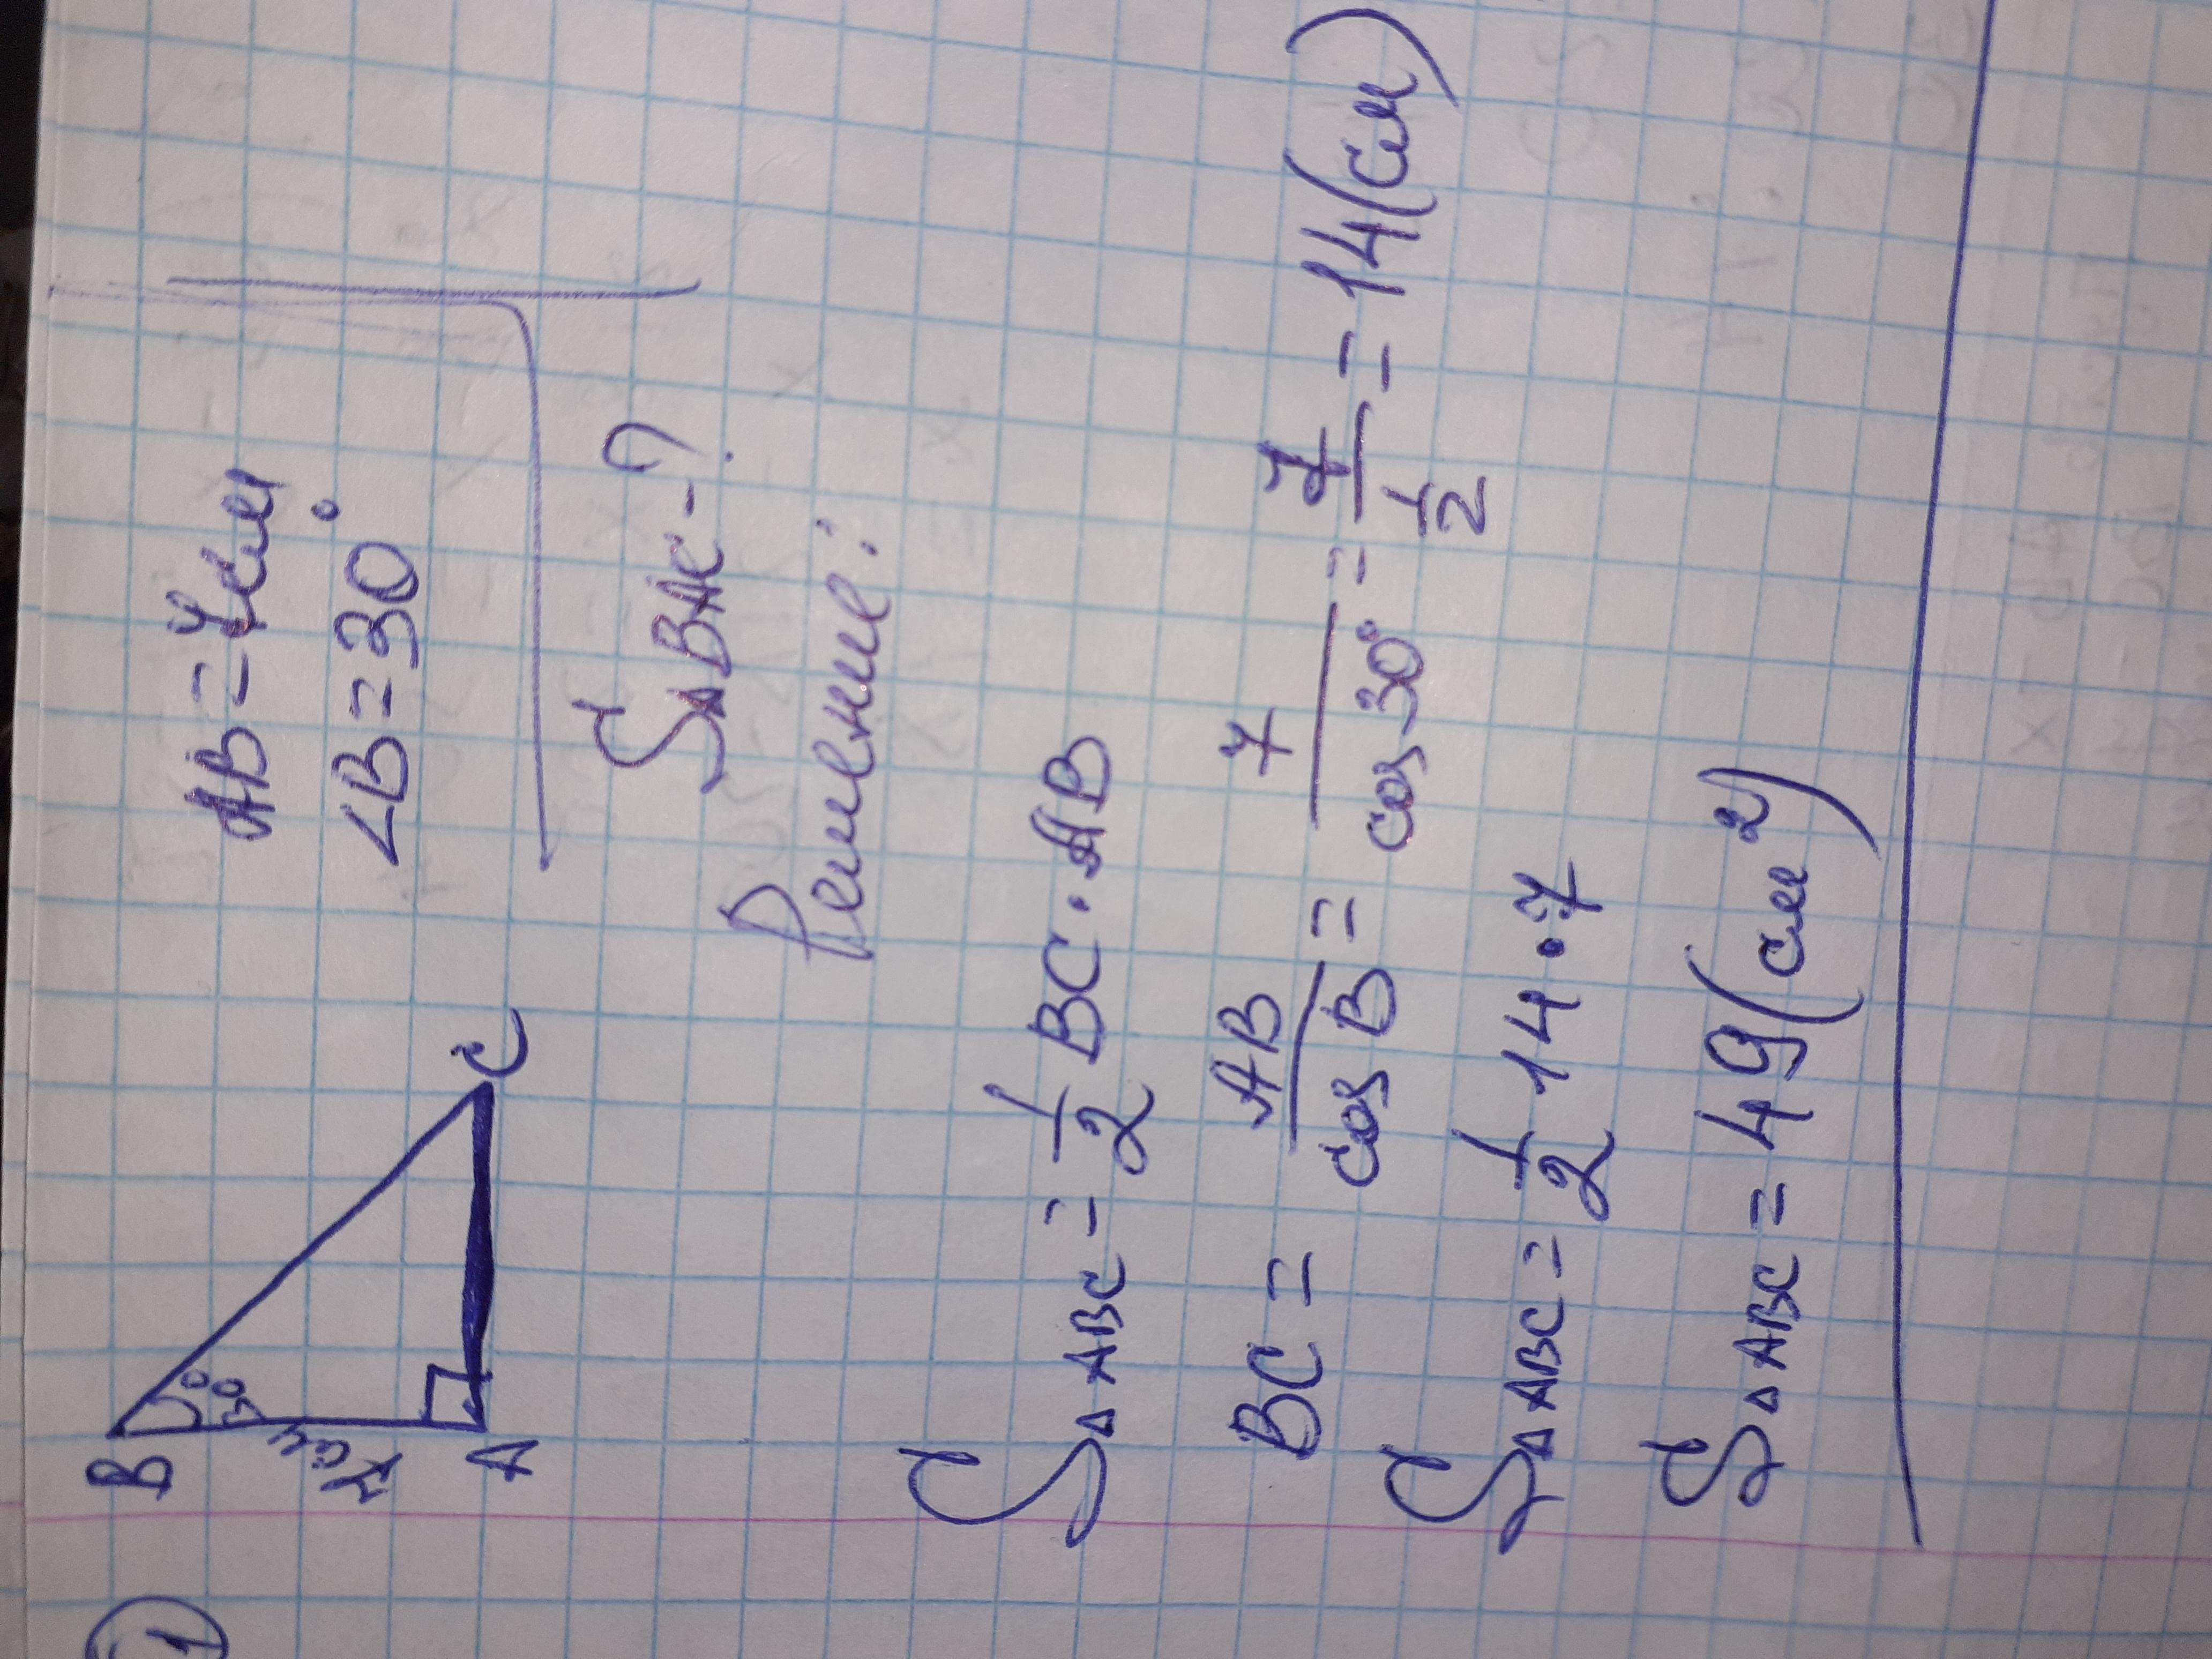 1
B
30°
7см
A
C
AB=7см
∠B=30°
S△BAC-?
Решение:
S△ABC=1/2 BC·AB
BC=AB/cosB=7/cos30°=7/(1/2)=14(см)
S△ABC=1/2 14·7
S△ABC=49(см²)